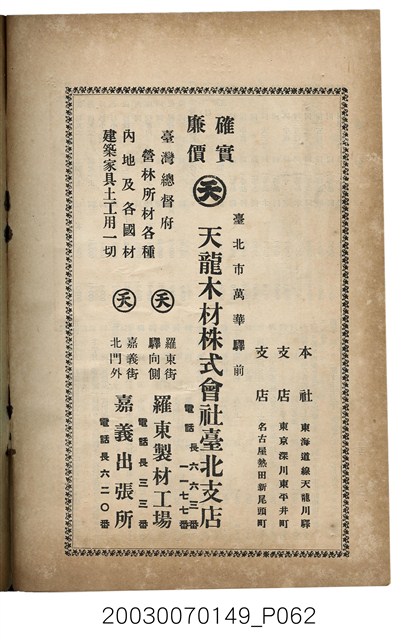 本社 東海道線天龍川驛
支店 東京深川東平井町
支店 名古屋熱田新尾頭町
臺北市萬華驛前
天龍木材株式會社臺北支店
電話長六六三番
一一七七番
確實
廉價
天
臺灣總督府
營林所材各種
內地及各國材
建築家具土工用一切
天
羅東街
驛向側
羅東製材工場
電話長三三番
天
嘉義街
北門外
嘉義出張所
電話長六二〇番
20030070149_P062